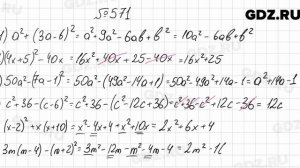 GDZ.RU
№571
1) a²+(3a-b)²=a²+9a²-6ab+b²=10a²-6ab+b²
(4x+5)²-40x=16x²+40x+25-40x=16x²+25
50a²-(7a-1)²=50a²-(49a²-14a+1)=50a²-49a²+14a-1=a²+14a-1
c²+36-(c-6)²=c²+36-(c²-12c+36)=c²+36-c²+12c-36=12c
(x-2)²+x(x+10)=x²-4x+4+x²+10x=2x²+6x+4
3m(m-4)-(m+2)²=3m²-12m-m²-4m-4=2m²-16
GDZ.RU